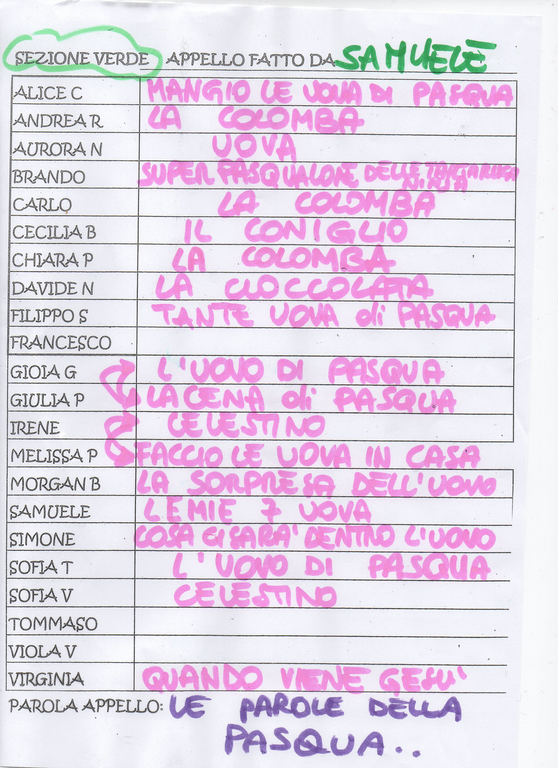 SEZIONE VERDE APPELLO FATTO DA SAMUELE
ALICE C MANGIO LE UOVA DI PASQUA
ANDREA R LA COLOMBA
AURORA N UOVA
BRANDO SUPER PASQUALONE DELLE TARTARUGA NINJA
CARLO LA COLOMBA
CECILIA B IL CONIGLIO
CHIARA P LA COLOMBA
DAVIDE N LA CIOCCOLATA
FILIPPO S TANTE UOVA di PASQUA
FRANCESCO
GIOIA G L'UOVO DI PASQUA
GIULIA P LA CENA di PASQUA
IRENE CELESTINO
MELISSA P FACCIO LE UOVA IN CASA
MORGAN B LA SORPRESA DELL'UOVO
SAMUELE LE MIE 7 UOVA
SIMONE COSA CI SARA' DENTRO L'UOVO
SOFIA T L'UOVO DI PASQUA
SOFIA V CELESTINO
TOMMASO
VIOLA V
VIRGINIA QUANDO VIENE GESU'
PAROLA APPELLO: LE PAROLE DELLA
PASQUA..